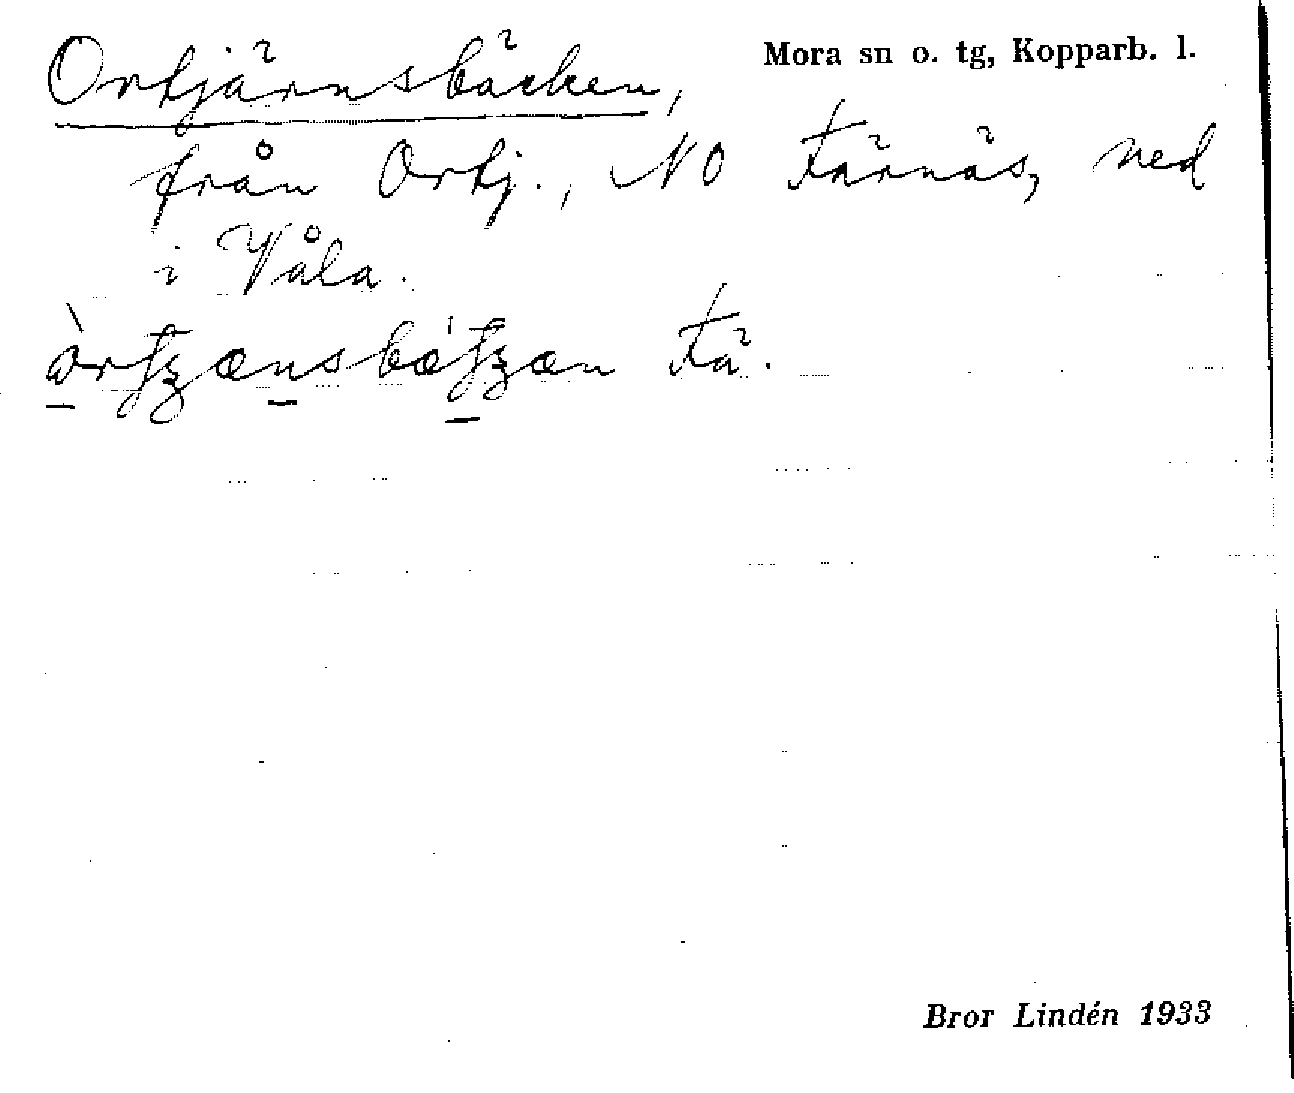 Ortjärnsbäcken,
Mora sn o. tg, Kopparb. l.
från Ortj., NO Färnäs, ned
i Våla.
Fä.
Bror Lindén 1933